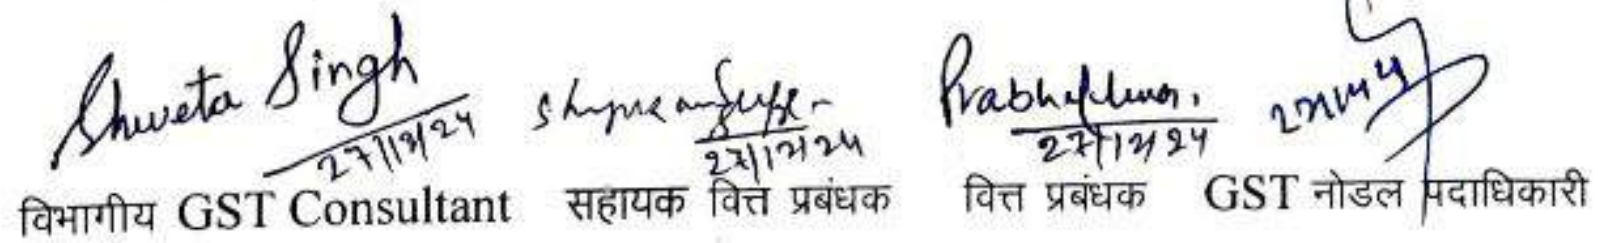 Shweta Singh
27/12/24 27/12/24 27/12/24
विभागीय GST Consultant सहायक वित्त प्रबंधक वित्त प्रबंधक GST नोडल पदाधिकारी